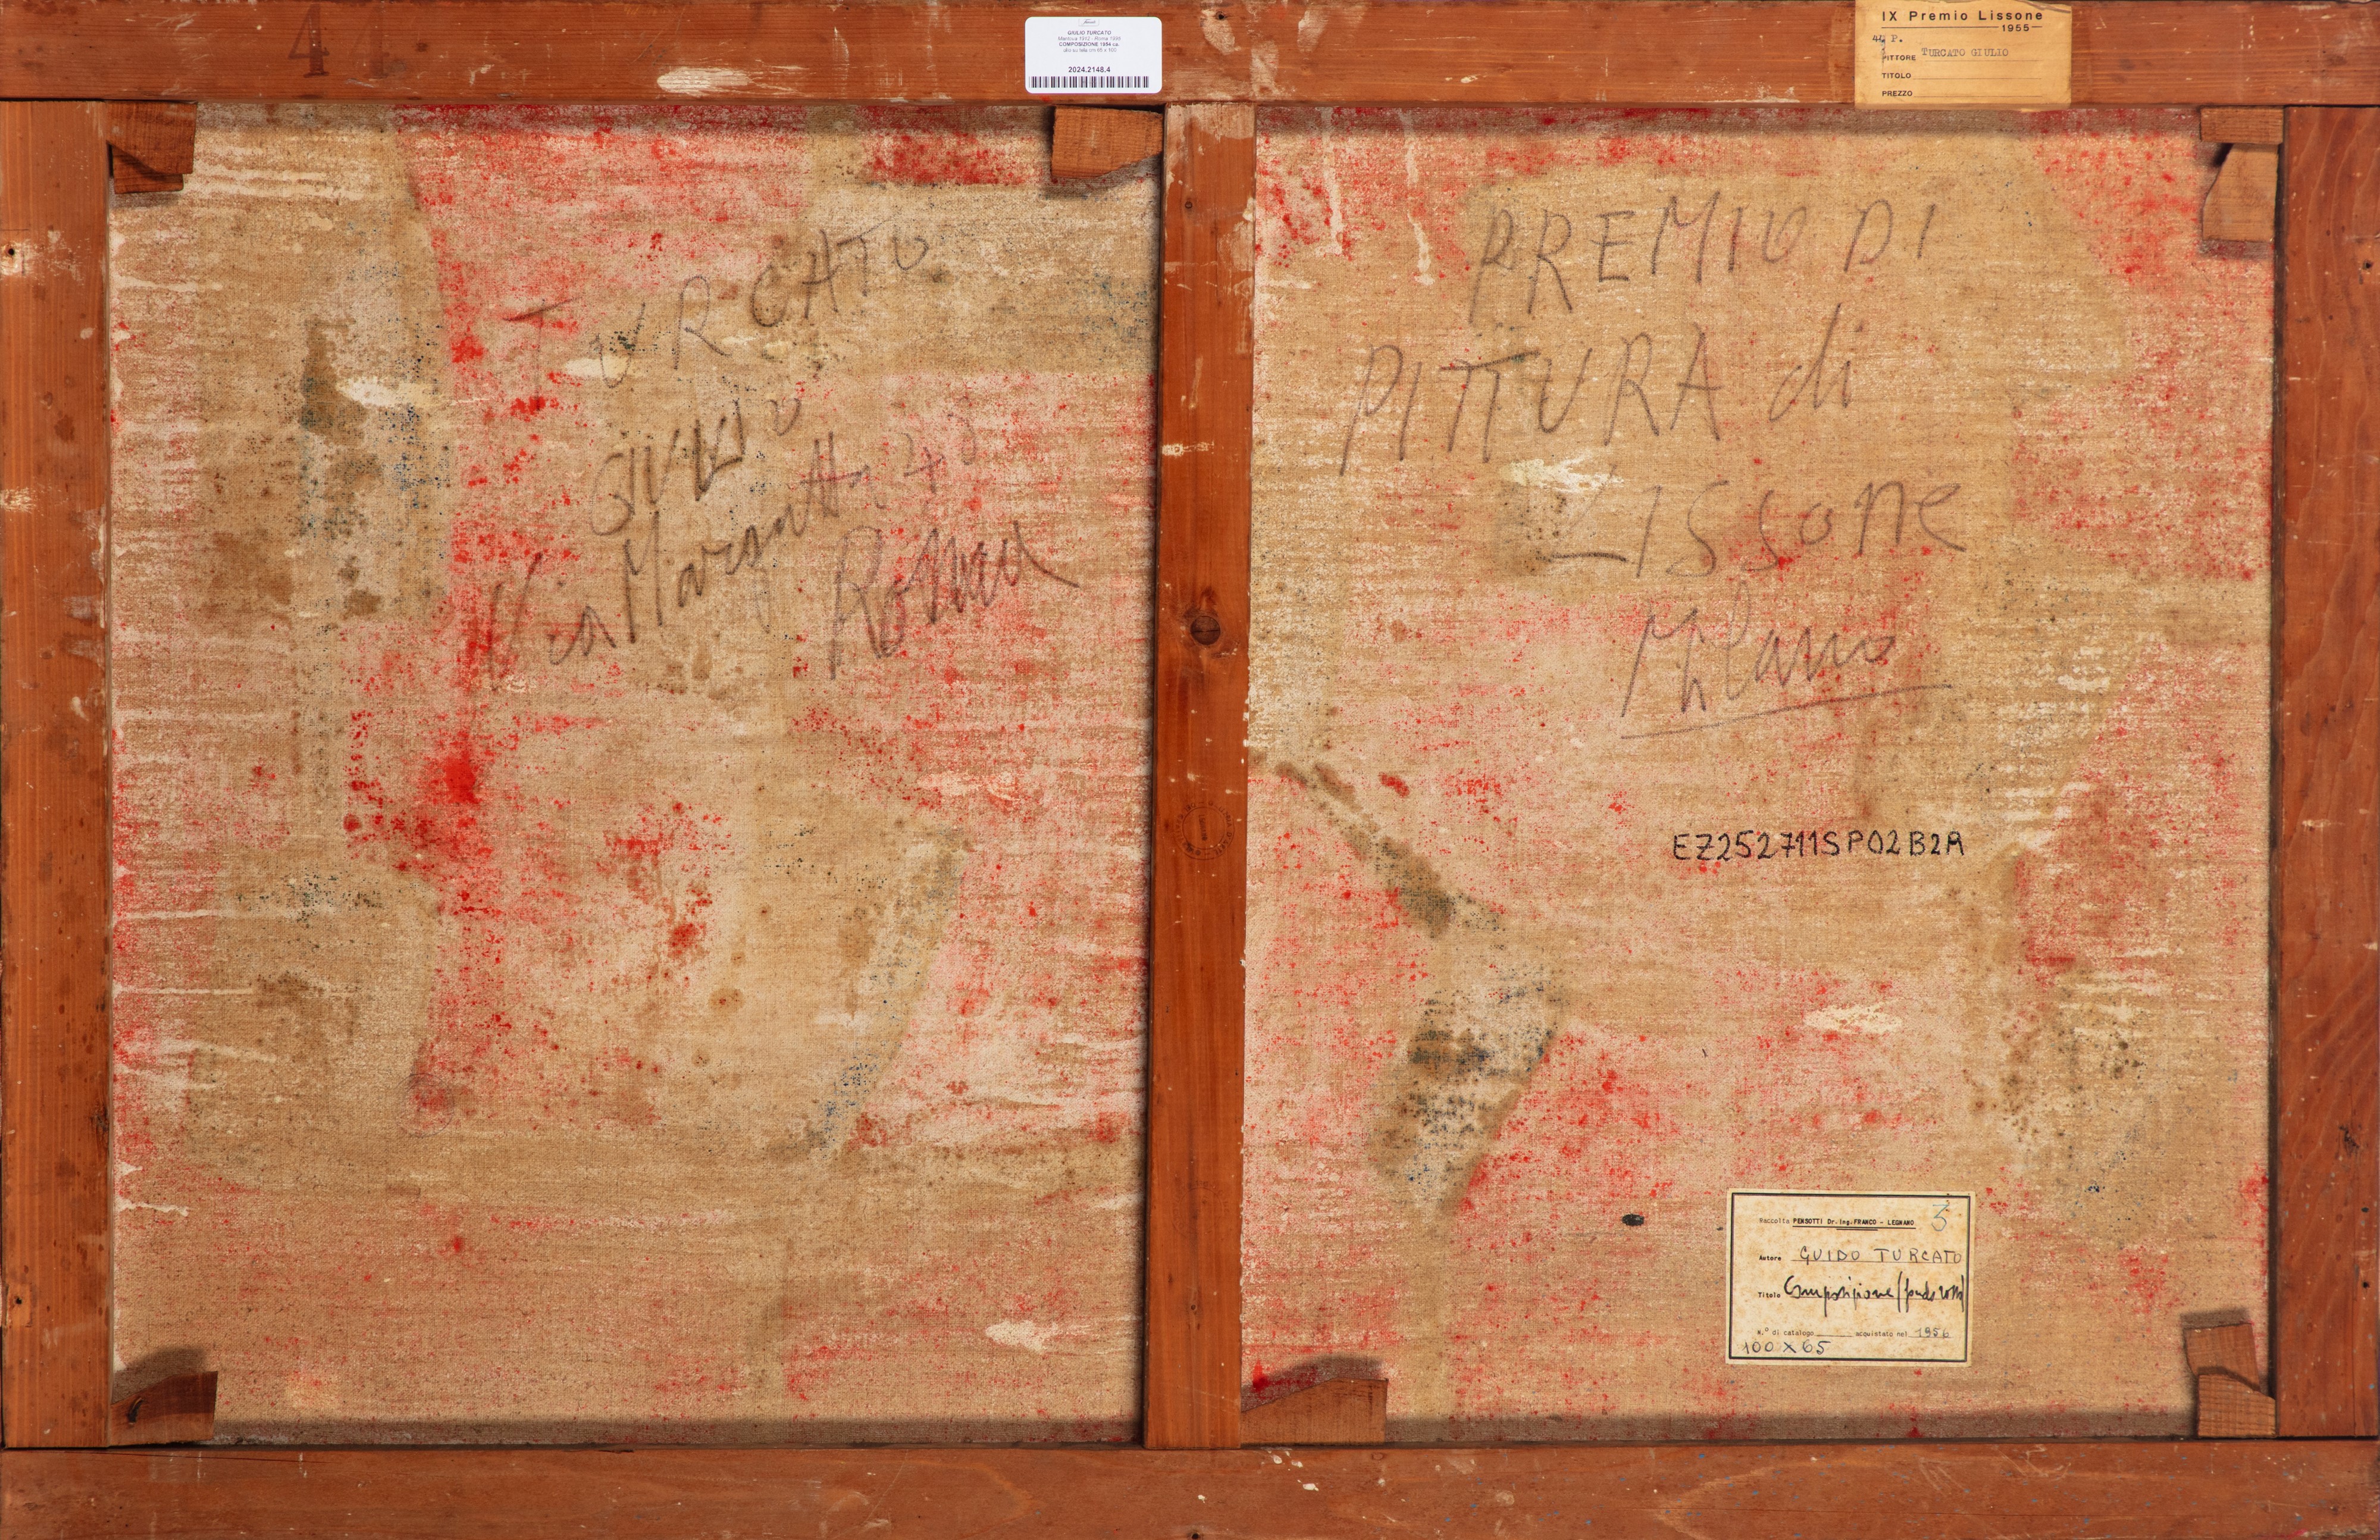 4
GIULIO TURCATO
Mantova 1912 - Roma 1995
COMPOSIZIONE 1954 ca.
olio su tela cm 65 x 100
2024.2148.4
IX Premio Lissone
—1955—
P.
PITTORE TURCATO GIULIO
TITOLO
PREZZO
TURCATO
GIULIO
Via Margutta 48
Roma
PREMIO DI
PITTURA di
LISsone
Milano
EZ252711SP02B2A
Raccolta PENSOTTI Dr. Ing. FRANCO - LEGNANO 3
Autore GUIDO TURCATO
Titolo Composizione (fondo rosso)
N.° di catalogo acquistato nel 1956
100 X 65